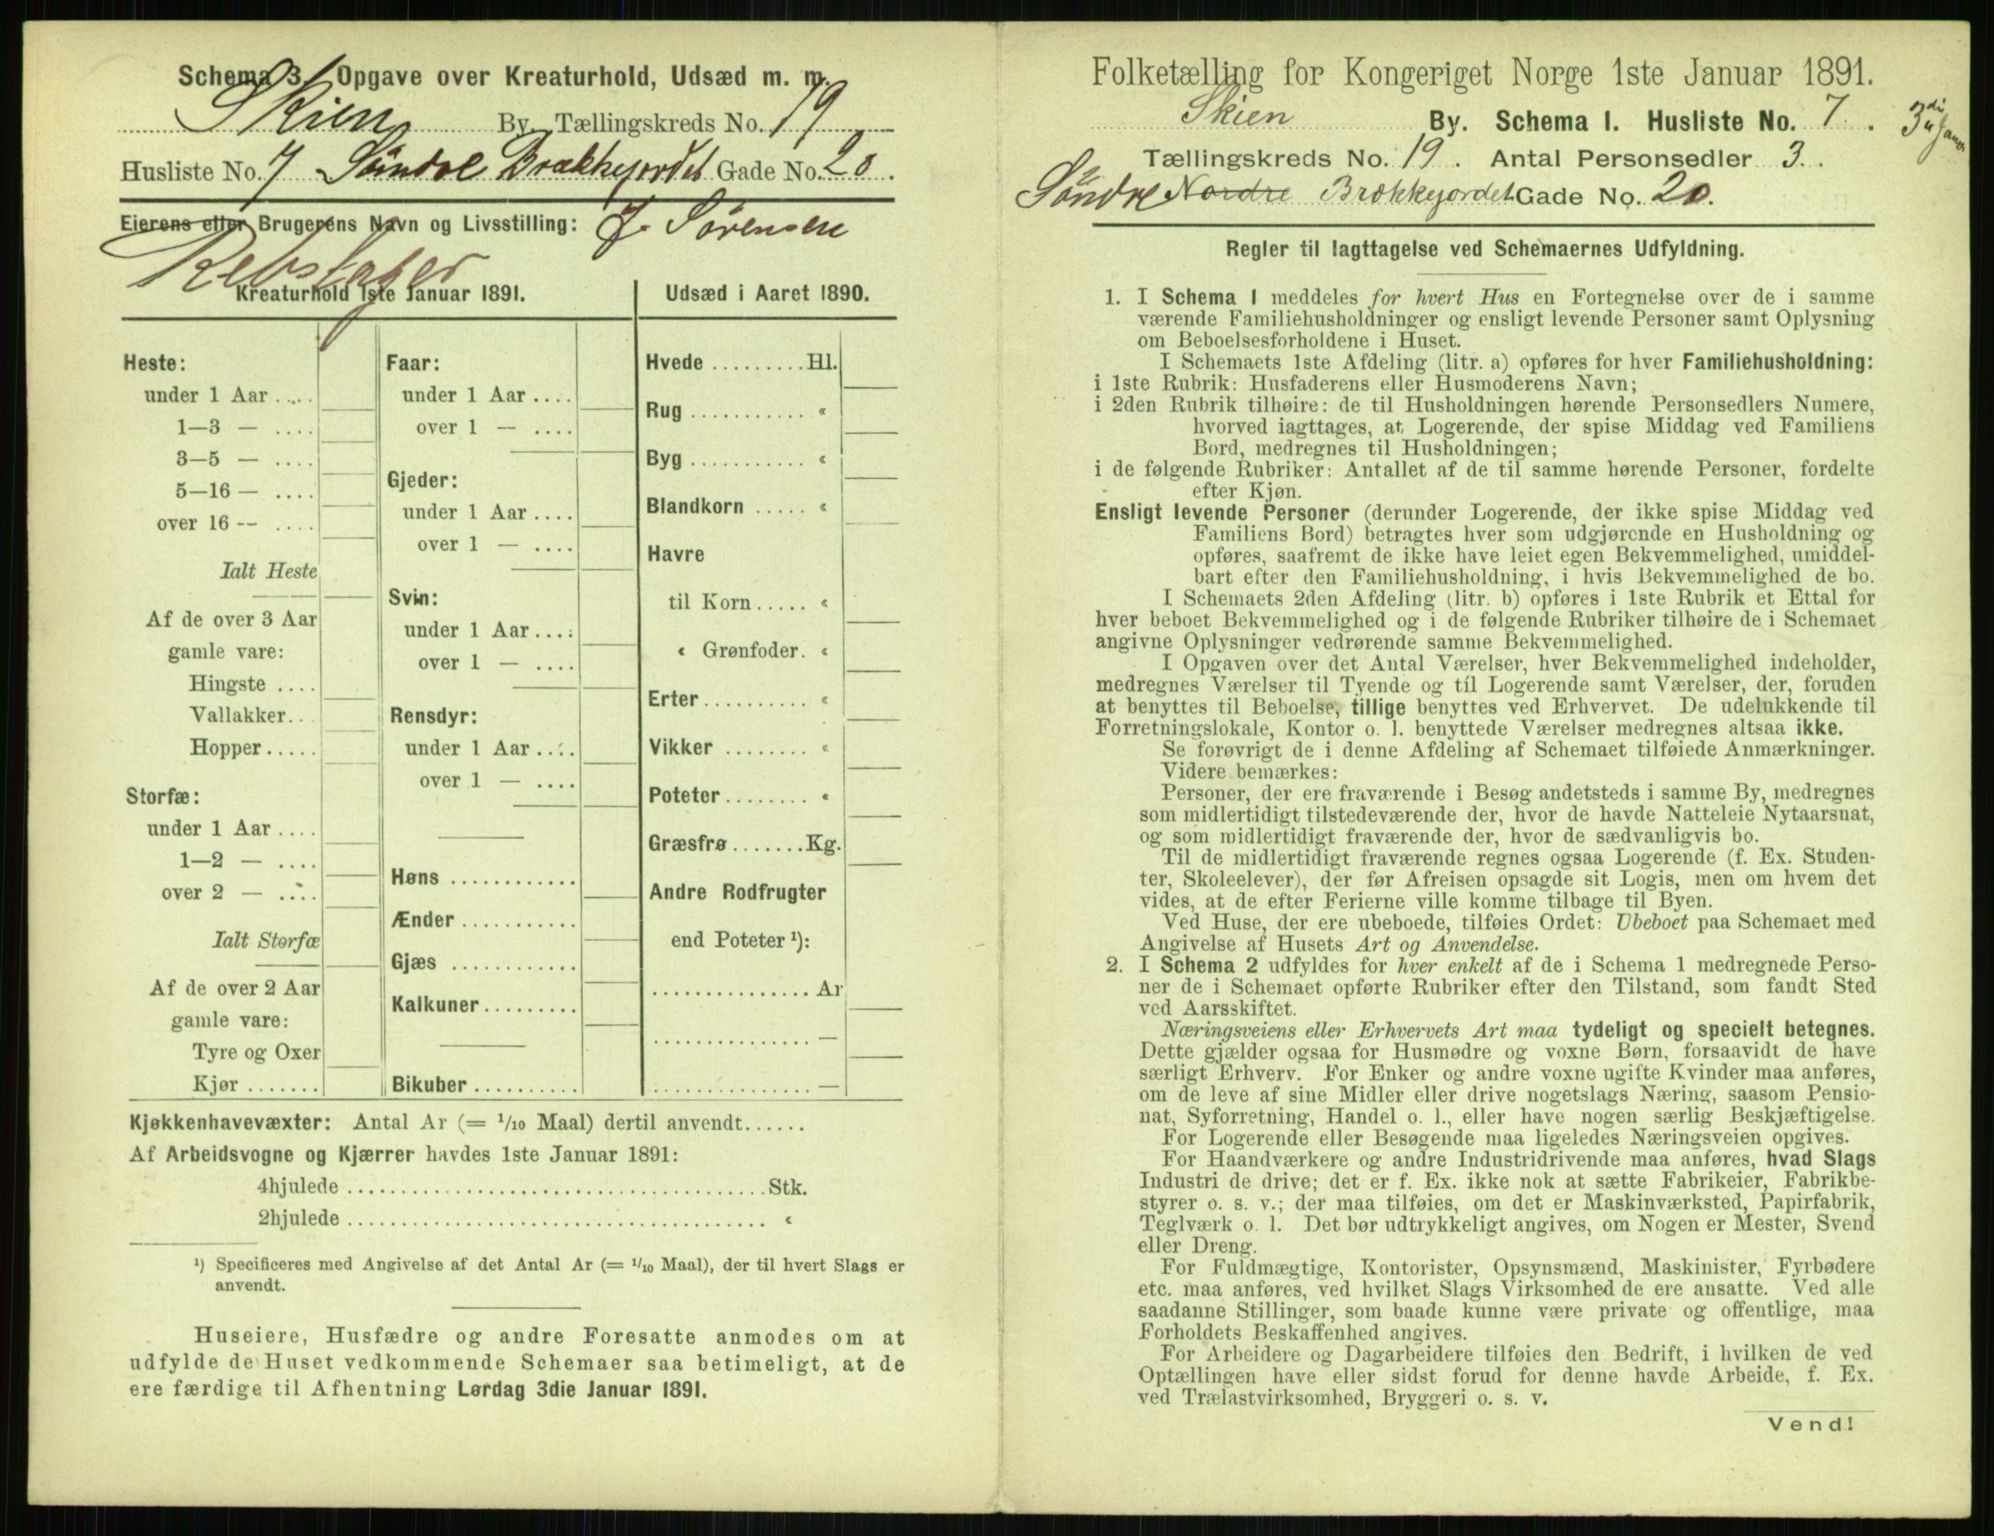 Schema 3. Opgave over Kreaturhold, Udsæd m. m.
Skien By. Tællingskreds No. 19
Husliste No. 7 Søndre Brækkejordet Gade No. 20.
Eierens eller Brugerens Navn og Livsstilling: J. Sørensen
Rebslager
Kreaturhold 1ste Januar 1891.
Heste:
under 1 Aar ....
1—3 — ....
3—5 — ....
5—16 — ....
over 16 -- ....
Ialt Heste
Af de over 3 Aar
gamle vare:
Hingste ....
Vallakker...
Hopper.....
Storfæ:
under 1 Aar ....
1—2 — ....
over 2 — ....
Ialt Storfæ
Af de over 2 Aar
gamle vare:
Tyre og Oxer
Kjør .......
Faar:
under 1 Aar ....
over 1 — ....
Gjeder:
under 1 Aar ....
over 1 — ....
Svin:
under 1 Aar ....
over 1 — ....
Rensdyr:
under 1 Aar ....
over 1 — ....
Høns ............
Ænder ...........
Gjæs ............
Kalkuner.........
Bikuber ..........
Udsæd i Aaret 1890.
Hvede .........Hl.
Rug ........... «
Byg ........... «
Blandkorn ..... «
Havre
til Korn..... «
« Grønfoder. «
Erter.......... «
Vikker ........ «
Poteter........ «
Græsfrø.......Kg.
Andre Rodfrugter
end Poteter ¹):
............... Ar
............... —
............... —
Kjøkkenhavevæxter: Antal Ar (= 1/10 Maal) dertil anvendt......
Af Arbeidsvogne og Kjærrer havdes 1ste Januar 1891:
4hjulede ........................................Stk.
2hjulede ........................................ «
¹) Specificeres med Angivelse af det Antal Ar (= 1/10 Maal), der til hvert Slags er
anvendt.
Huseiere, Husfædre og andre Foresatte anmodes om at
udfylde de Huset vedkommende Schemaer saa betimeligt, at de
ere færdige til Afhentning Lørdag 3die Januar 1891.
Folketælling for Kongeriget Norge 1ste Januar 1891.
Skien By. Schema I. Husliste No. 7.
Tællingskreds No. 19. Antal Personsedler 3.
Søndre Nordre Brækkejordet Gade No. 20.
Regler til Iagttagelse ved Schemaernes Udfyldning.
1. I Schema I meddeles for hvert Hus en Fortegnelse over de i samme
værende Familiehusholdninger og ensligt levende Personer samt Oplysning
om Beboelsesforholdene i Huset.
I Schemaets 1ste Afdeling (litr. a) opføres for hver Familiehusholdning:
i 1ste Rubrik: Husfaderens eller Husmoderens Navn;
i 2den Rubrik tilhøire: de til Husholdningen hørende Personsedlers Numere,
hvorved iagttages, at Logerende, der spise Middag ved Familiens
Bord, medregnes til Husholdningen;
i de følgende Rubriker: Antallet af de til samme hørende Personer, fordelte
efter Kjøn.
Ensligt levende Personer (derunder Logerende, der ikke spise Middag ved
Familiens Bord) betragtes hver som udgjørende en Husholdning og
opføres, saafremt de ikke have leiet egen Bekvemmelighed, umiddel-
bart efter den Familiehusholdning, i hvis Bekvemmelighed de bo.
I Schemaets 2den Afdeling (litr. b) opføres i 1ste Rubrik et Ettal for
hver beboet Bekvemmelighed og i de følgende Rubriker tilhøire de i Schemaet
angivne Oplysninger vedrørende samme Bekvemmelighed.
I Opgaven over det Antal Værelser, hver Bekvemmelighed indeholder,
medregnes Værelser til Tyende og til Logerende samt Værelser, der, foruden
at benyttes til Beboelse, tillige benyttes ved Erhvervet. De udelukkende til
Forretningslokale, Kontor o. l. benyttede Værelser medregnes altsaa ikke.
Se forøvrigt de i denne Afdeling af Schemaet tilføiede Anmærkninger.
Videre bemærkes:
Personer, der ere fraværende i Besøg andetsteds i samme By, medregnes
som midlertidigt tilstedeværende der, hvor de havde Natteleie Nytaarsnat,
og som midlertidigt fraværende der, hvor de sædvanligvis bo.
Til de midlertidigt fraværende regnes ogsaa Logerende (f. Ex. Studen-
ter, Skoleelever), der før Afreisen opsagde sit Logis, men om hvem det
vides, at de efter Ferierne ville komme tilbage til Byen.
Ved Huse, der ere ubeboede, tilføies Ordet: Ubeboet paa Schemaet med
Angivelse af Husets Art og Anvendelse.
2. I Schema 2 udfyldes for hver enkelt af de i Schema 1 medregnede Perso-
ner de i Schemaet opførte Rubriker efter den Tilstand, som fandt Sted
ved Aarsskiftet.
Næringsveiens eller Erhvervets Art maa tydeligt og specielt betegnes.
Dette gjælder ogsaa for Husmødre og voxne Børn, forsaavidt de have
særligt Erhverv. For Enker og andre voxne ugifte Kvinder maa anføres,
om de leve af sine Midler eller drive nogetslags Næring, saasom Pensio-
nat, Syforretning, Handel o. l., eller have nogen særlig Beskjæftigelse.
For Logerende eller Besøgende maa ligeledes Næringsveien opgives.
For Haandværkere og andre Industridrivende maa anføres, hvad Slags
Industri de drive; det er f. Ex. ikke nok at sætte Fabrikeier, Fabrikbe-
styrer o. s. v.; der maa tilføies, om det er Maskinværksted, Papirfabrik,
Teglværk o. l. Det bør udtrykkeligt angives, om Nogen er Mester, Svend
eller Dreng.
For Fuldmægtige, Kontorister, Opsynsmænd, Maskinister, Fyrbødere
etc. maa anføres, ved hvilket Slags Virksomhed de ere ansatte. Ved alle
saadanne Stillinger, som baade kunne være private og offentlige, maa
Forholdets Beskaffenhed angives.
For Arbeidere og Dagarbeidere tilføies den Bedrift, i hvilken de ved
Optællingen have eller sidst forud for denne havde Arbeide, f. Ex.
ved Trælastvirksomhed, Bryggeri o. s. v.
Vend!